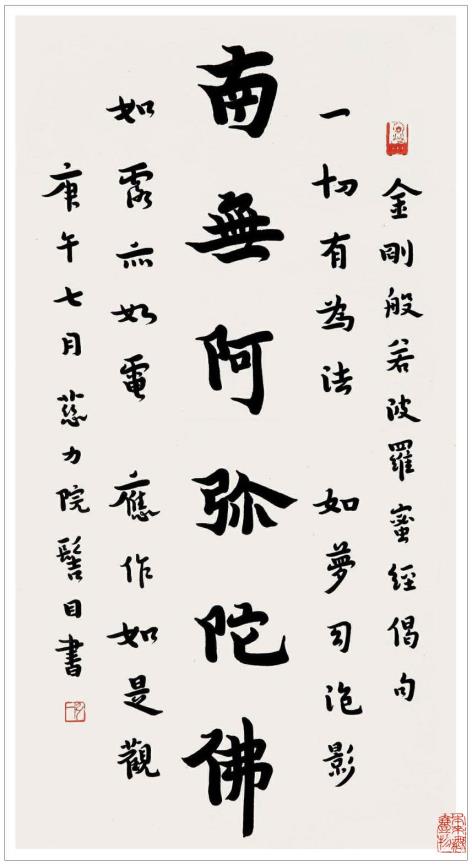 金剛般若波羅蜜經偈句
一切有為法 如夢幻泡影
南無阿弥陀佛
如露亦如電 應作如是觀
庚午七月 慈力院髻目書